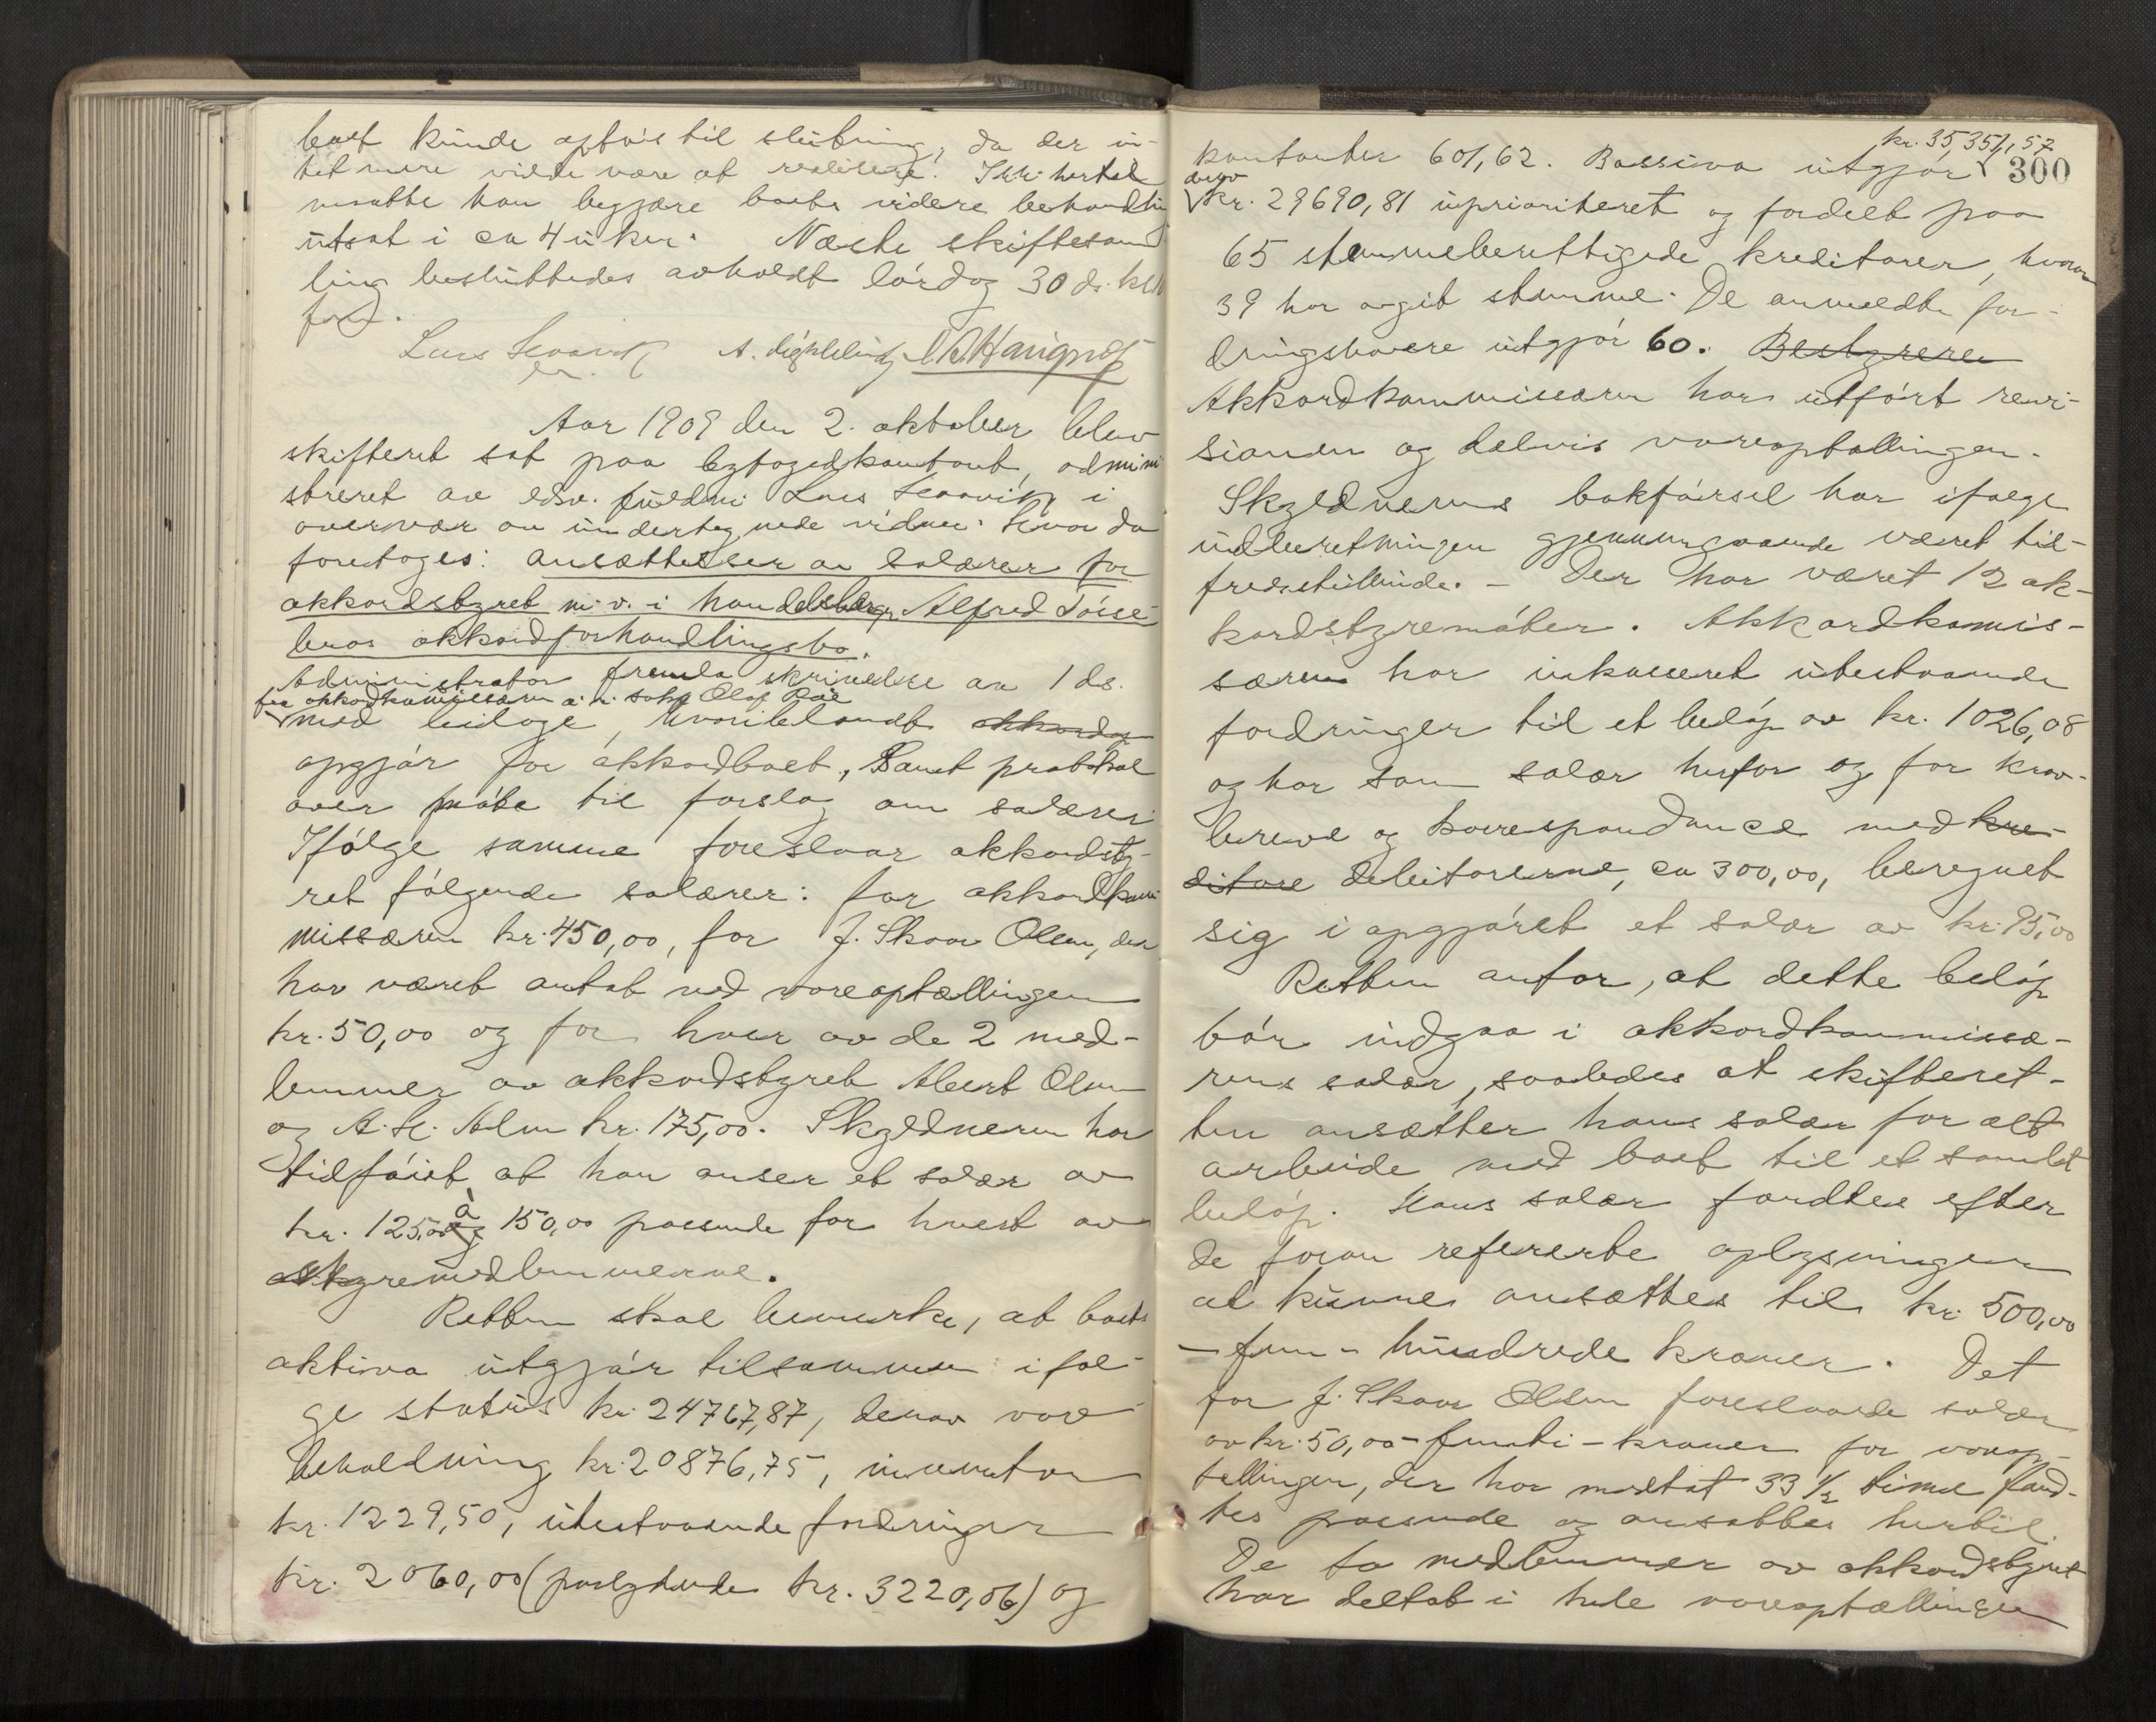 boet kunde optas til slutning, da der in-
tet mere vilde være at realisere.
maatte han begjære boets videre behandling
utsat i ca 4 uker. Næste skiftesam
ling besluttedes avholdt lørdag 30 ds. kl.
form.
Lars
Aar 1909 den 2. oktober blev
skifteret sat paa byfogedkontoret, admini
streret av edsv. fuldm. Lars i
overvær av undertegnede vidner. Hvor da
foretoges: Ansættelser av salærer for
akkordstyret m.v. i handelsborger Alfred
akkordforhandlingsbo.
Administrator fremla skrivelse av 1 ds.
fra akkordkommissæren o.r. sakf. Olaf
med bilage, hvoriblandt akkords
opgjør for akkordboet, samt protokol
over møte til forslag om salærer
Ifølge samme foreslaar akkordsty-
ret følgende salærer: for akkordkom
missæren kr. 450,00, for J. Skaar Olsen, der
har været antat ved vareoptællingen
kr. 50,00 og for hver av de 2 med-
lemmer av akkordstyret Albert Olsen
og A. H. Alm kr. 175,00. Skyldneren har
tilføiet at han anser et salær av
kr. 125,00 à 150,00 passende for hvert av
styremedlemmerne.
Retten skal bemerke, at boets
aktiva utgjør tilsammen iføl-
ge status kr. 24767,87, derav vare
beholdning kr. 20876,75, inventar
kr. 1229,50, utestaaende fordringer
kr. 2060,00 (paalydende kr. 3220,06) og
300
kr. 35,351,57
kontanter 601,62. Passiva utgjør
derav
kr. 29690,81 uprioriteret og fordelt paa
65 stemmeberettigede kreditorer, hvorav
39 har avgit stemme. De anmeldte for-
dringshavere utgjør 60. Bestyreren
Akkordkommissæren har utført revi-
sionen og delvis vareoptællingen.
Skyldnerens bokførsel har ifølge
indberetningen gjennemgaaende været til-
fredsstillende. - Der har været 12 ak-
kordstyremøter. Akkordkomis-
særen har inkasseret utestaaende
fordringer til et beløp av kr. 1026,08
og har som salær herfor og for krav-
breve og korrespondance med kre-
ditore debitorerne, ca 300,00, beregnet
sig i opgjøret et salær av kr. 75,00
Retten anfør, at dette beløp
bør indgaa i akkordkommissæ-
rens salær, saaledes at skifteret-
ten ansætter hans salær for alt
arbeide med boet til et samlet
beløp. Hans salær fandtes efter
de foran refererte oplysninger
at kunne ansættes til kr. 500,00
- fem - hundrede kroner. Det
for J. Skaar Olsen foreslaaede salær
av kr. 50,00 - femti - kroner for vareop-
tællingen, der har medtat 33 1/2 time fand-
tes passende og ansattes hertil.
De to medlemmer av akkordstyret
har deltat i hele vareoptællingen